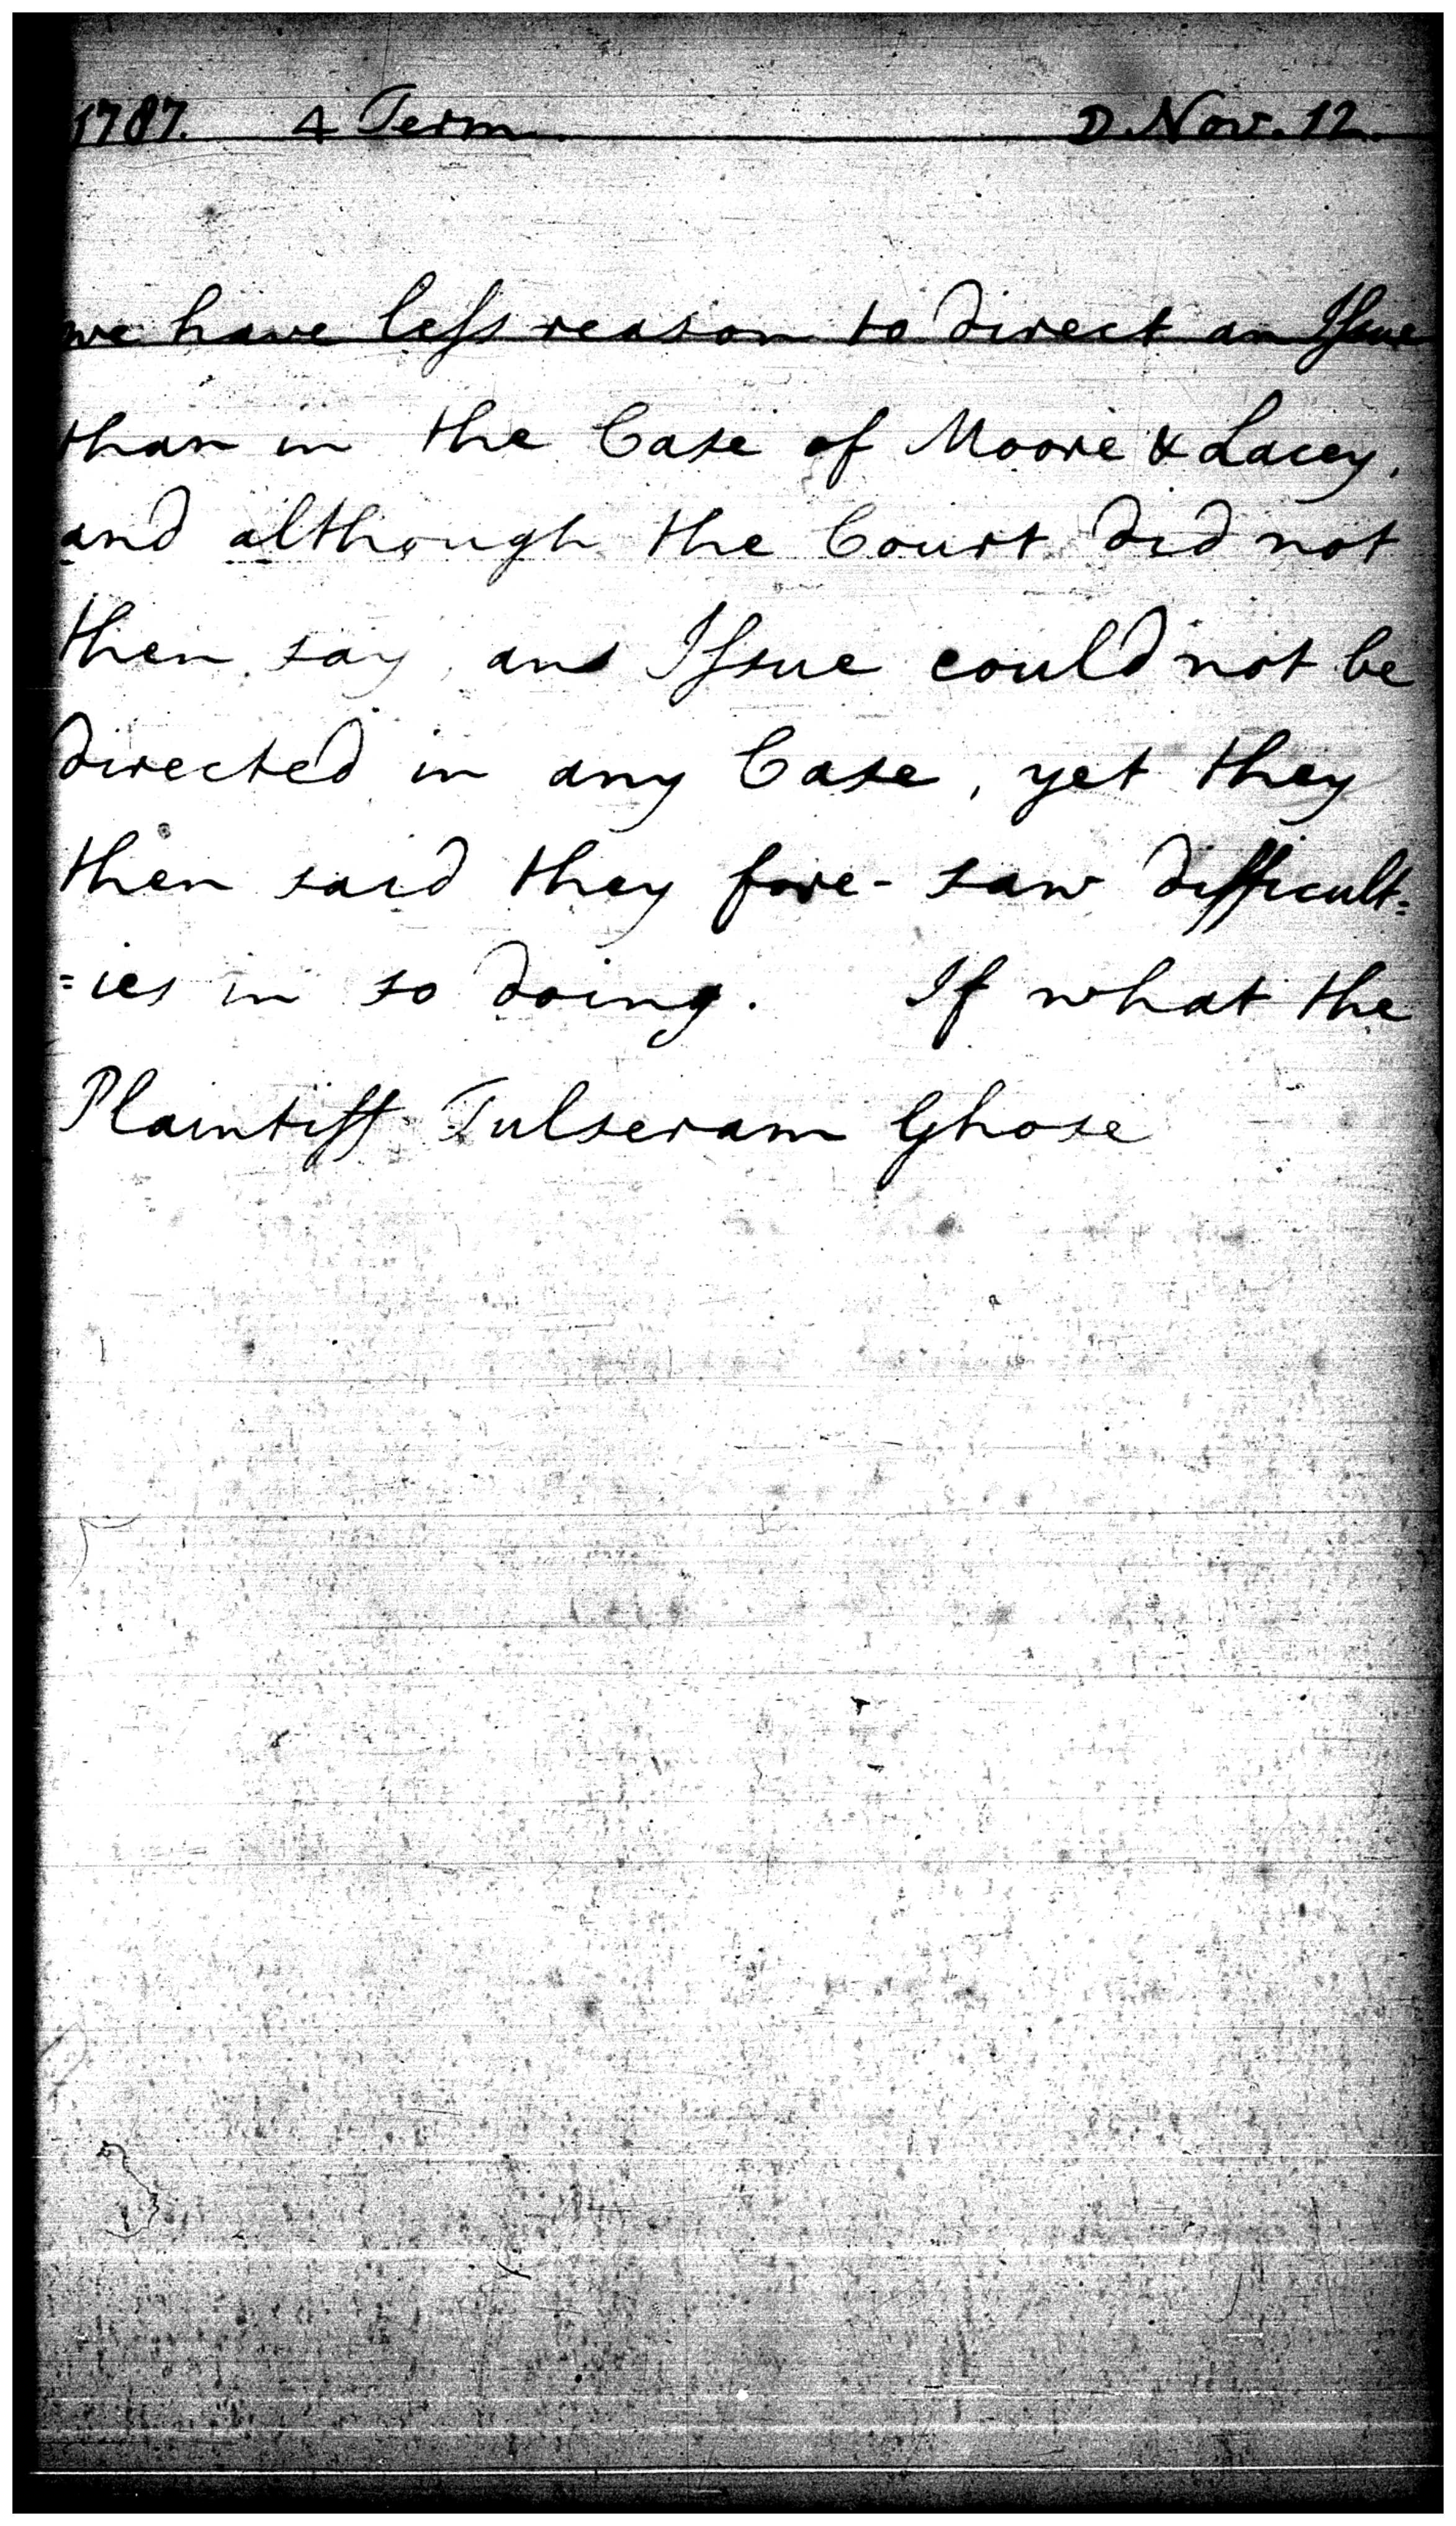 1787. 4 Term. D. Nov. 12.
we have less reason to direct an Issue
than in the Case of Moore & Lacey.
and although the Court did not
then say, and Issue could not be
directed in any Case, yet they
then said they fore- saw difficult=
=ies in so doing. If what the
Plaintiff Tulseram Ghose